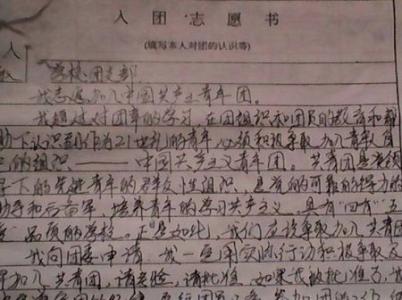 入团志愿书
(填写本人对团的认识等)
入
学校团支部
我志愿加入中国共产主义青年团。
我通过对团章的学习,在团组织和团员的教育和帮
助下认识到作为21世纪的青年,必须积极争取加入青年自
己的组织——中国共产主义青年团。共青团是党领
导下的先进青年的群众性组织,是党的可靠的得力的
助手和后备军,培养青年的学习共产主义,具有"四有"五
品质的学校。正是如此,我们应该争取加入共青团
我向团委申请 我一定用实际行动积极争取及
早加入共青团,请考验,请批准。如果我被批准了,我